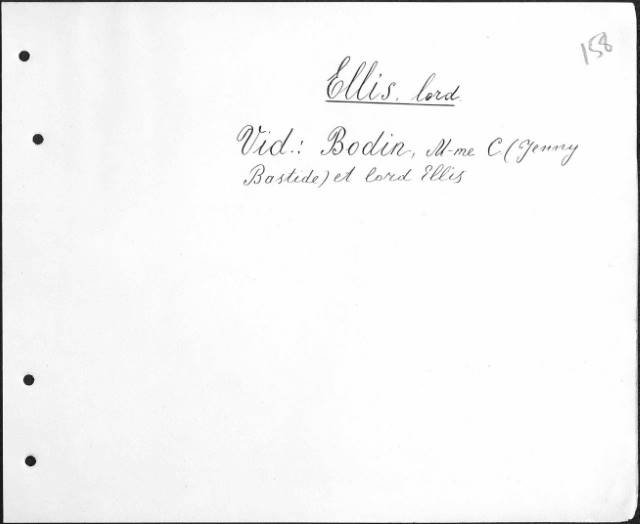 158
Ellis, lord.
Vid.: Bodin, M-me C. (Jenny
Bastide) et lord Ellis